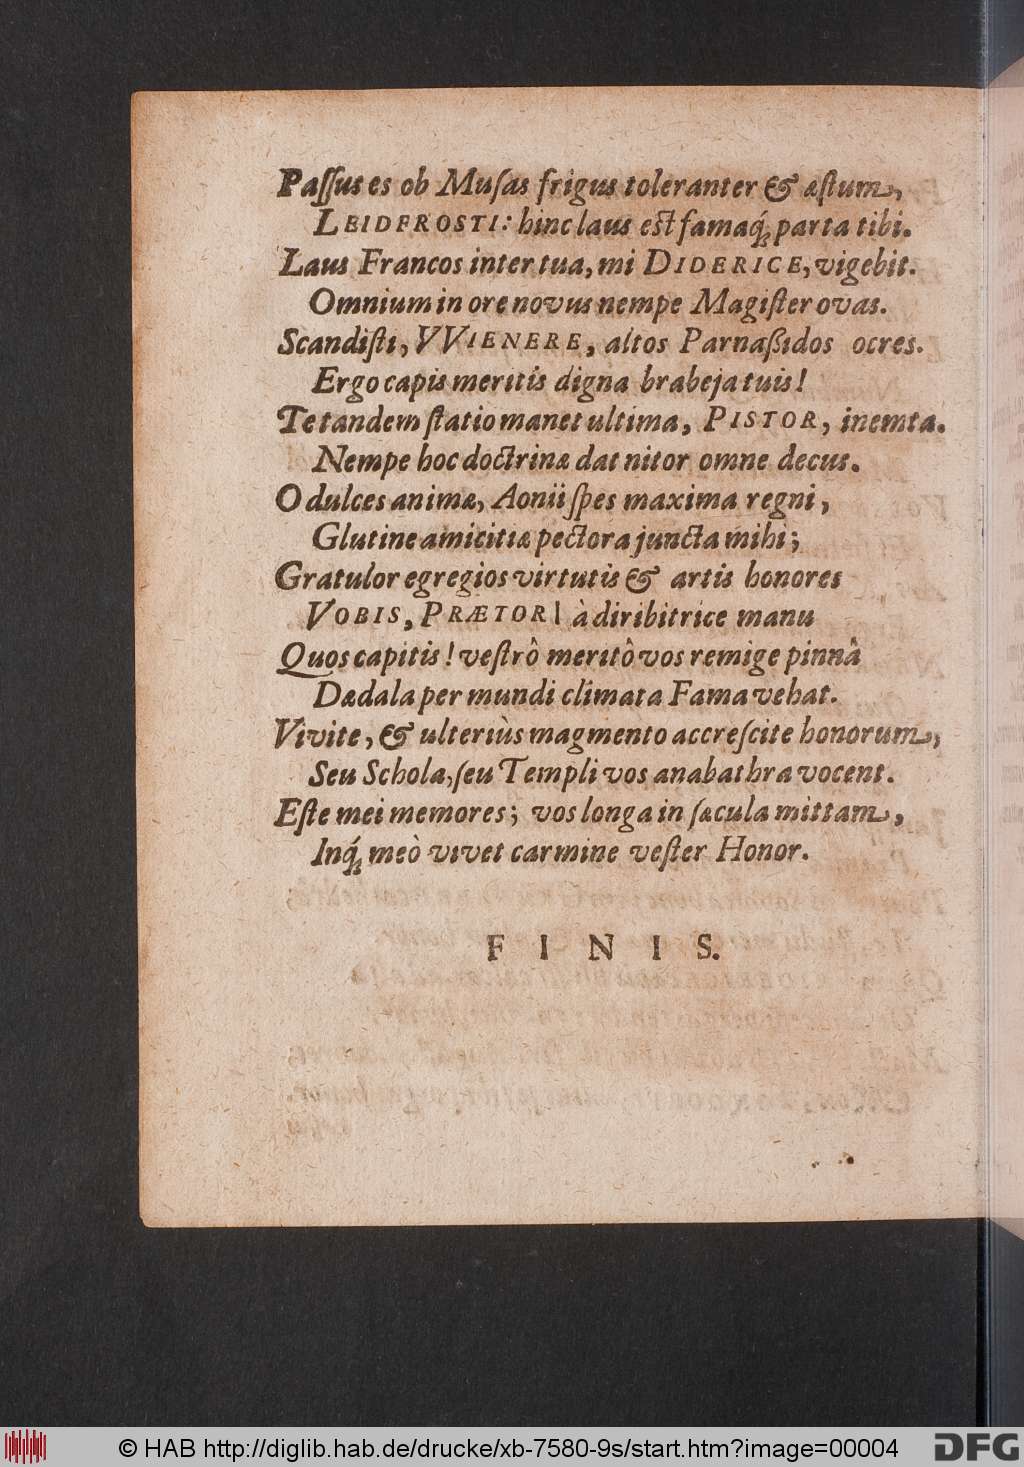 Paſſus es ob Muſas frigus toleranter & æſtum,
LEIDFROSTI: hinc laus eſt famaq́; parta tibi.
Laus Francos inter tua, mi DIDERICE, vigebit.
Omnium in ore novus nempe Magiſter ovas.
Scandiſti, VVIENERE, altos Parnaßidos ocres.
Ergo capis meritis digna brabeja tuis!
Te tandem ſtatio manet ultima, PISTOR, inemta.
Nempe hoc doctrinæ dat nitor omne decus.
O dulces animæ, Aonii ſpes maxima regni,
Glutine amicitiæ pectora juncta mihi;
Gratulor egregios virtutis & artis honores
VOBIS, PRÆTORI à diribitrice manu
Quos capitis! veſtrô meritô vos remige pinnâ
Dædala per mundi climata Fama vehat.
Vivite, & ulteriùs magmento accreſcite honorum,
Seu Schola, ſeu Templi vos anabathra vocent.
Eſte mei memores; vos longa in ſæcula mittam,
Inq́; meò vivet carmine veſter Honor.
FINIS.
© HAB http://diglib.hab.de/drucke/xb-7580-9s/start.htm?image=00004
DFG